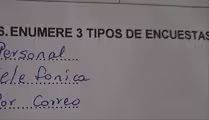 S. ENUMERE 3 TIPOS DE ENCUESTAS
Personal....
ele fonica
Por Correo